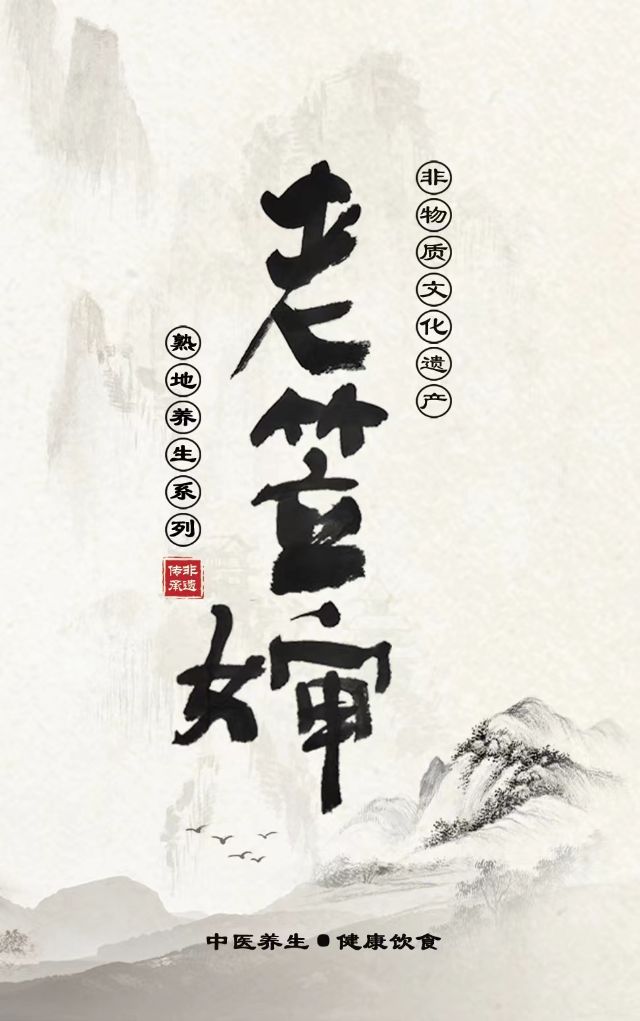 非物质文化遗产
老管婶
熟地养生系列
非遗
传承
中医养生●健康饮食